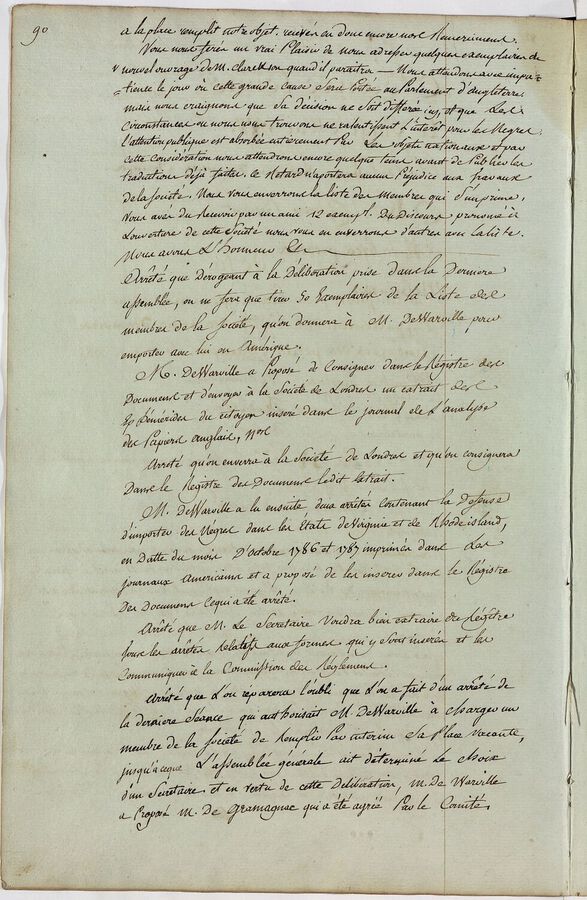 90
a la place remplit notre objet. recevés en donc encore nos Remerciments.
Vous nous ferés un vrai Plaisir de nous adresser quelques exemplaires du
nouvel ouvrage de M. Clarckson quand il paraîtra — Nous attendons avec impa-
=tience le jour où cette grande cause Sera Portée au Parlement d'Angleterre.
mais nous craignons que Sa décision ne Soit différée ici, et que Les
Circonstances ou nous nous trouvons ne ralentissent L'intérêt pour les Negres.
l'attention publique est absorbée entierement Par Les objets nationaux et par
cette Considération nous attendrons encore quelque tems avant de Publier les
traductions déjà faites. le Retard n'aportera aucun Préjudice aux travaux
de la Société. Nous vous enverrons la liste des Membres qui S'imprime,
Vous avés du Recevoir par un ami 12 exempl. Du Discours prononcé à
L'ouverture de cette Société nous vous en enverrons d'autres avec la liste.
Nous avons L'honneur &c
Arrêté que Derogeant à la Déliberation prise dans la Derniere
assemblée, on ne fera que tirer 50 Exemplaires de la Liste des
membres de la Société, qu'on donnera à M. DeWarville pour
emporter avec lui en Amérique.
M. DeWarville a Proposé de Consigner dans le Régistre des
Documens et d'envoyer à la Société de Londres un extrait des
Ephémérides du citoyen inseré dans le journal de L'analyse
des Papiers anglais, N
Arreté qu'on enverra à la Société de Londres et qu'on consignera
Dans le Registre des Documens ledit Extrait.
M. deWarville a lu ensuite deux arrêtés Contenant la Defense
d'importer des Négres dans les États de Virginie et de Rhode island,
en Datte du mois D'octobre 1786 et 1787 imprimés dans Les
journaux Americains et a proposé de les inserer dans le Régistre
Des Documens ce qui a été arrêté.
Arrêté que M. Le Secretaire Voudra bien extraire du Régître
tous les arrêtés Relatifs aux formes qui y Sont inserés et les
Communiquer à la Commission des Réglemens.
Arrêté que L'on reparera l'oubli que L'on a fait d'un arrêté de
la derniere Séance qui authorisait M. DeWarville à charger un
membre de la Société de Remplir Par interim Sa Place vacante,
jusqu'à ceque L'assemblée générale ait déterminé Le choix
d'un Secrétaire. et en vertu de cette Deliberation, M. De Warville
a Proposé M. De Gramagnac qui a été agréé Par le Comité.